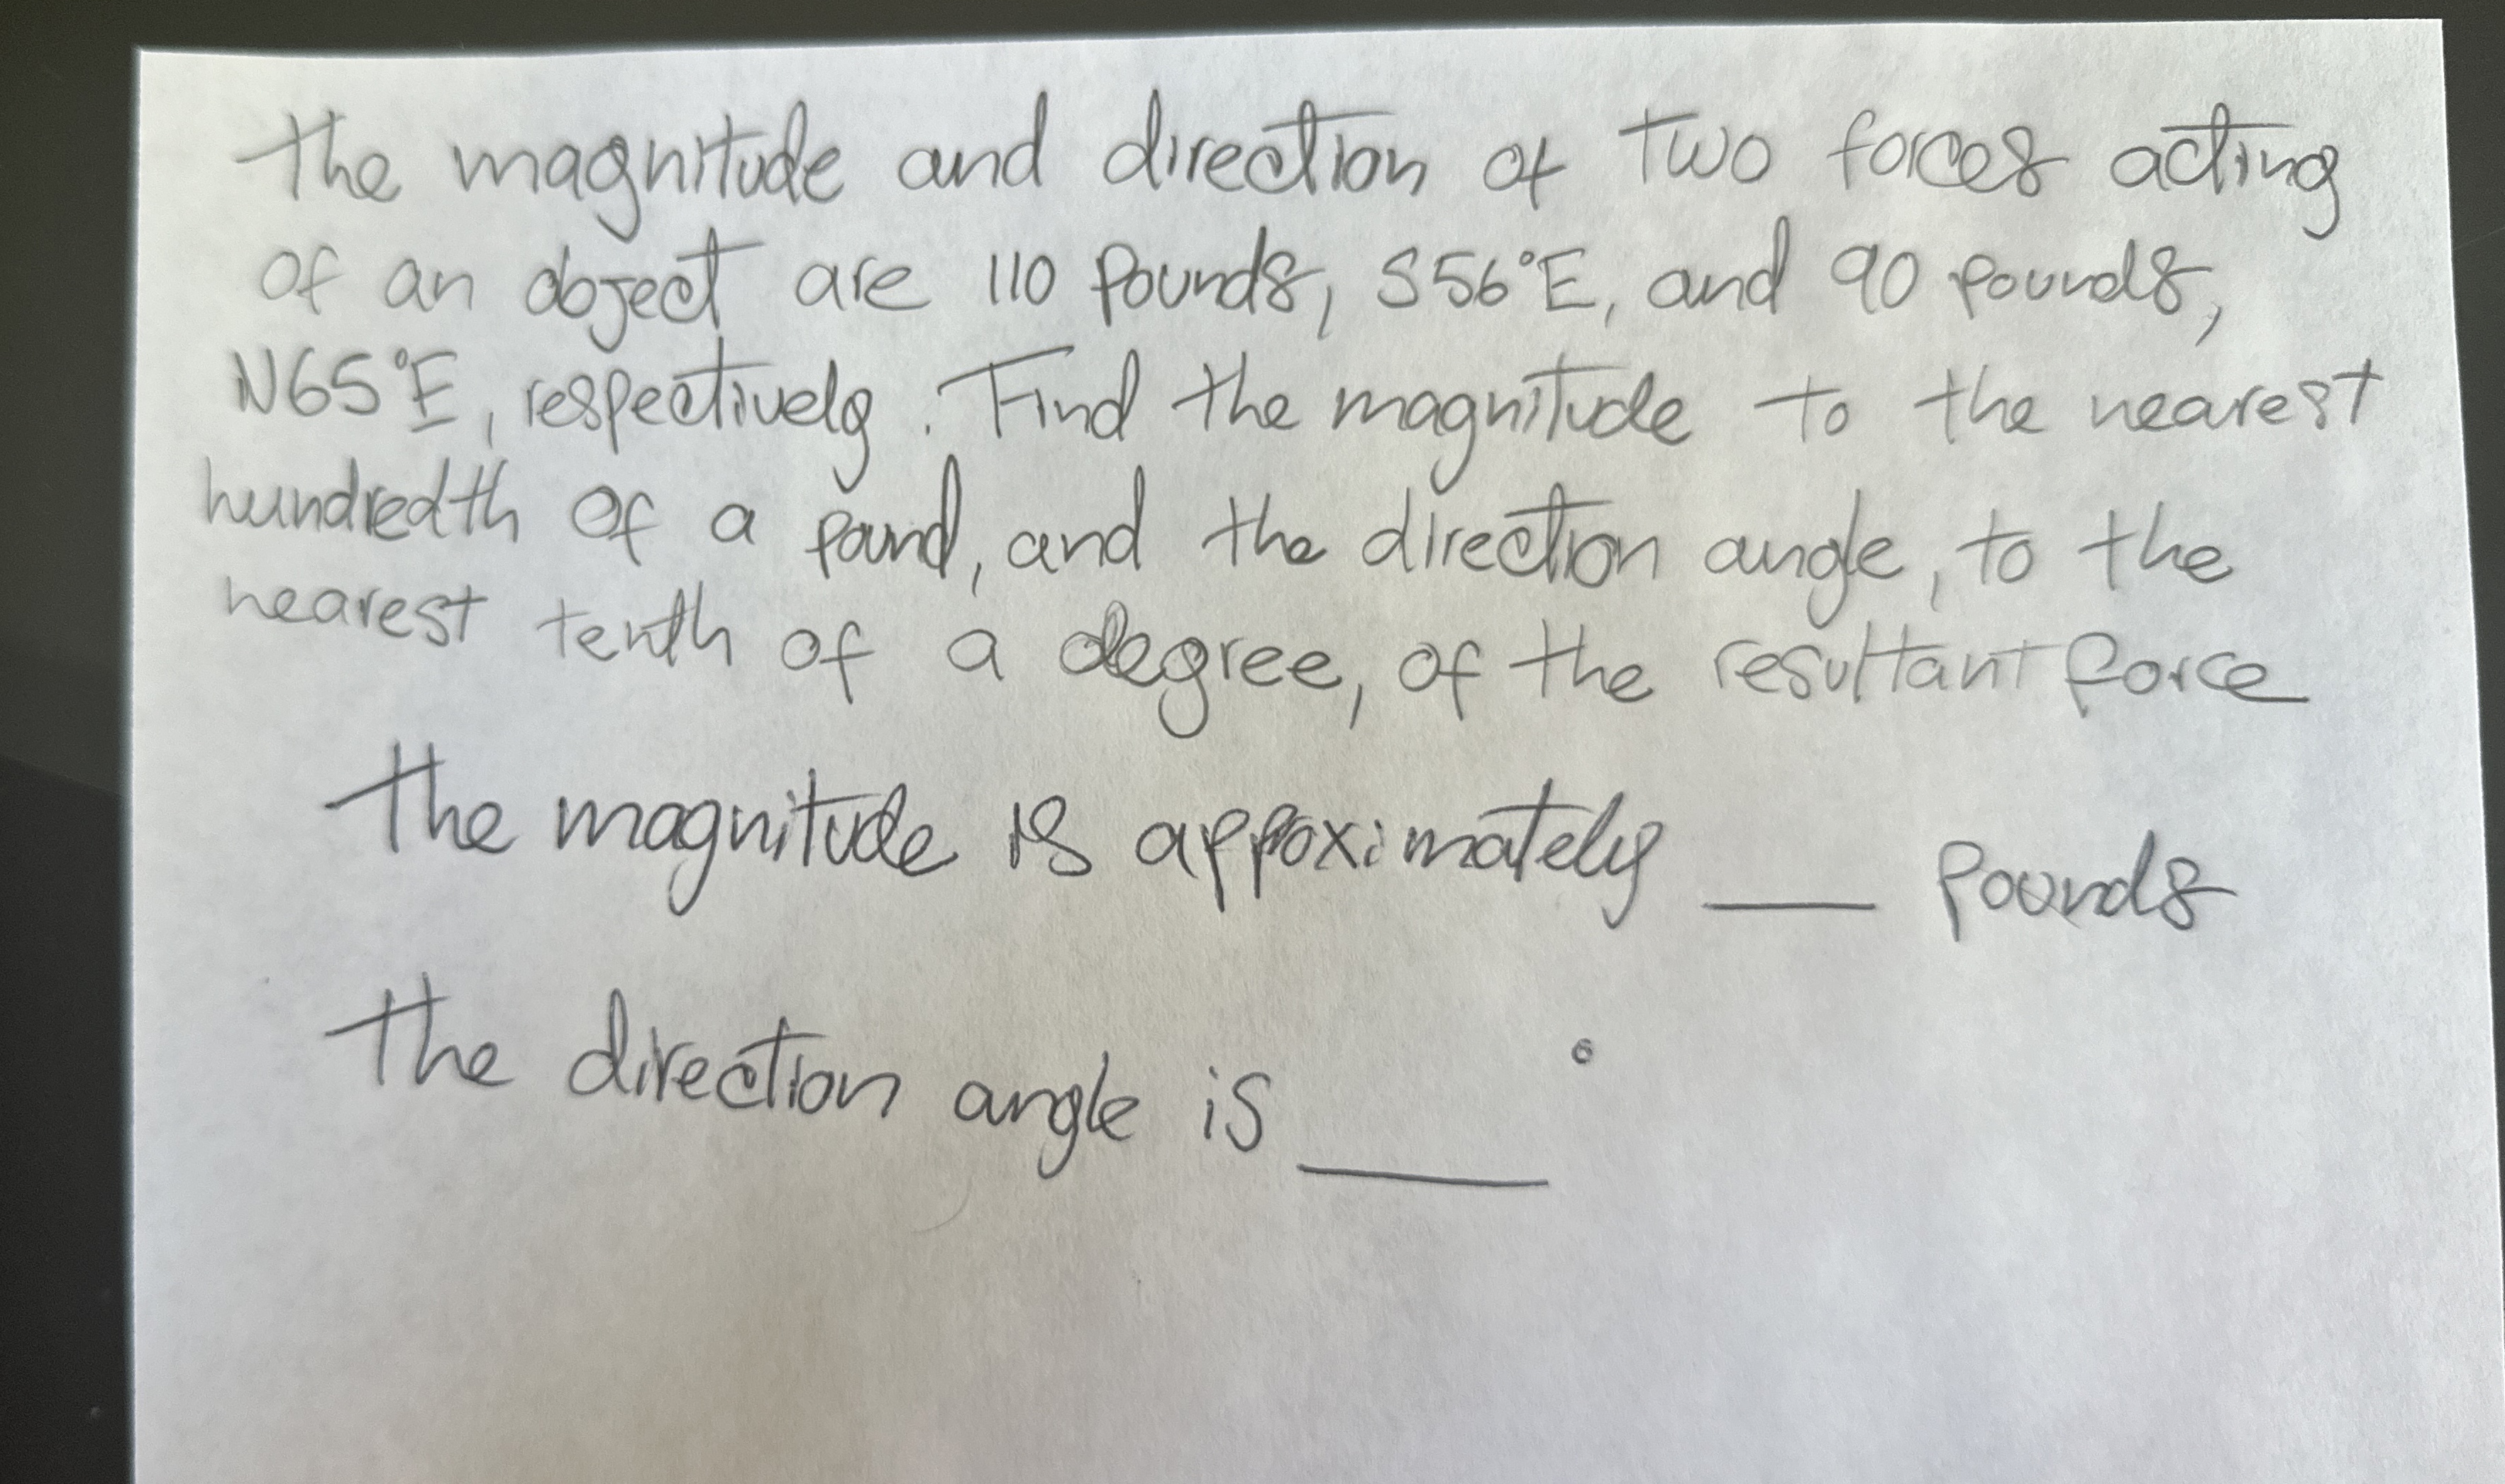 The magnitude and direction of two forces acting
of an object are 110 pounds, S56°E, and 90 pounds,
N65°E, respectively. Find the magnitude to the nearest
hundredth of a pound, and the direction angle, to the
nearest tenth of a degree, of the resultant force
The magnitude is appoximately ___ pounds
The direction angle is ____°